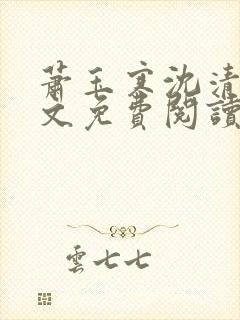 蕭玉寒沈清
文免費閱讀
雲七七